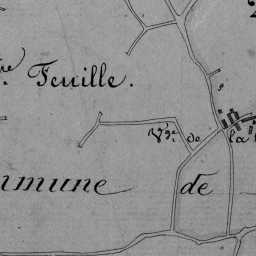 Feuille.
V.ge de la
mmune de